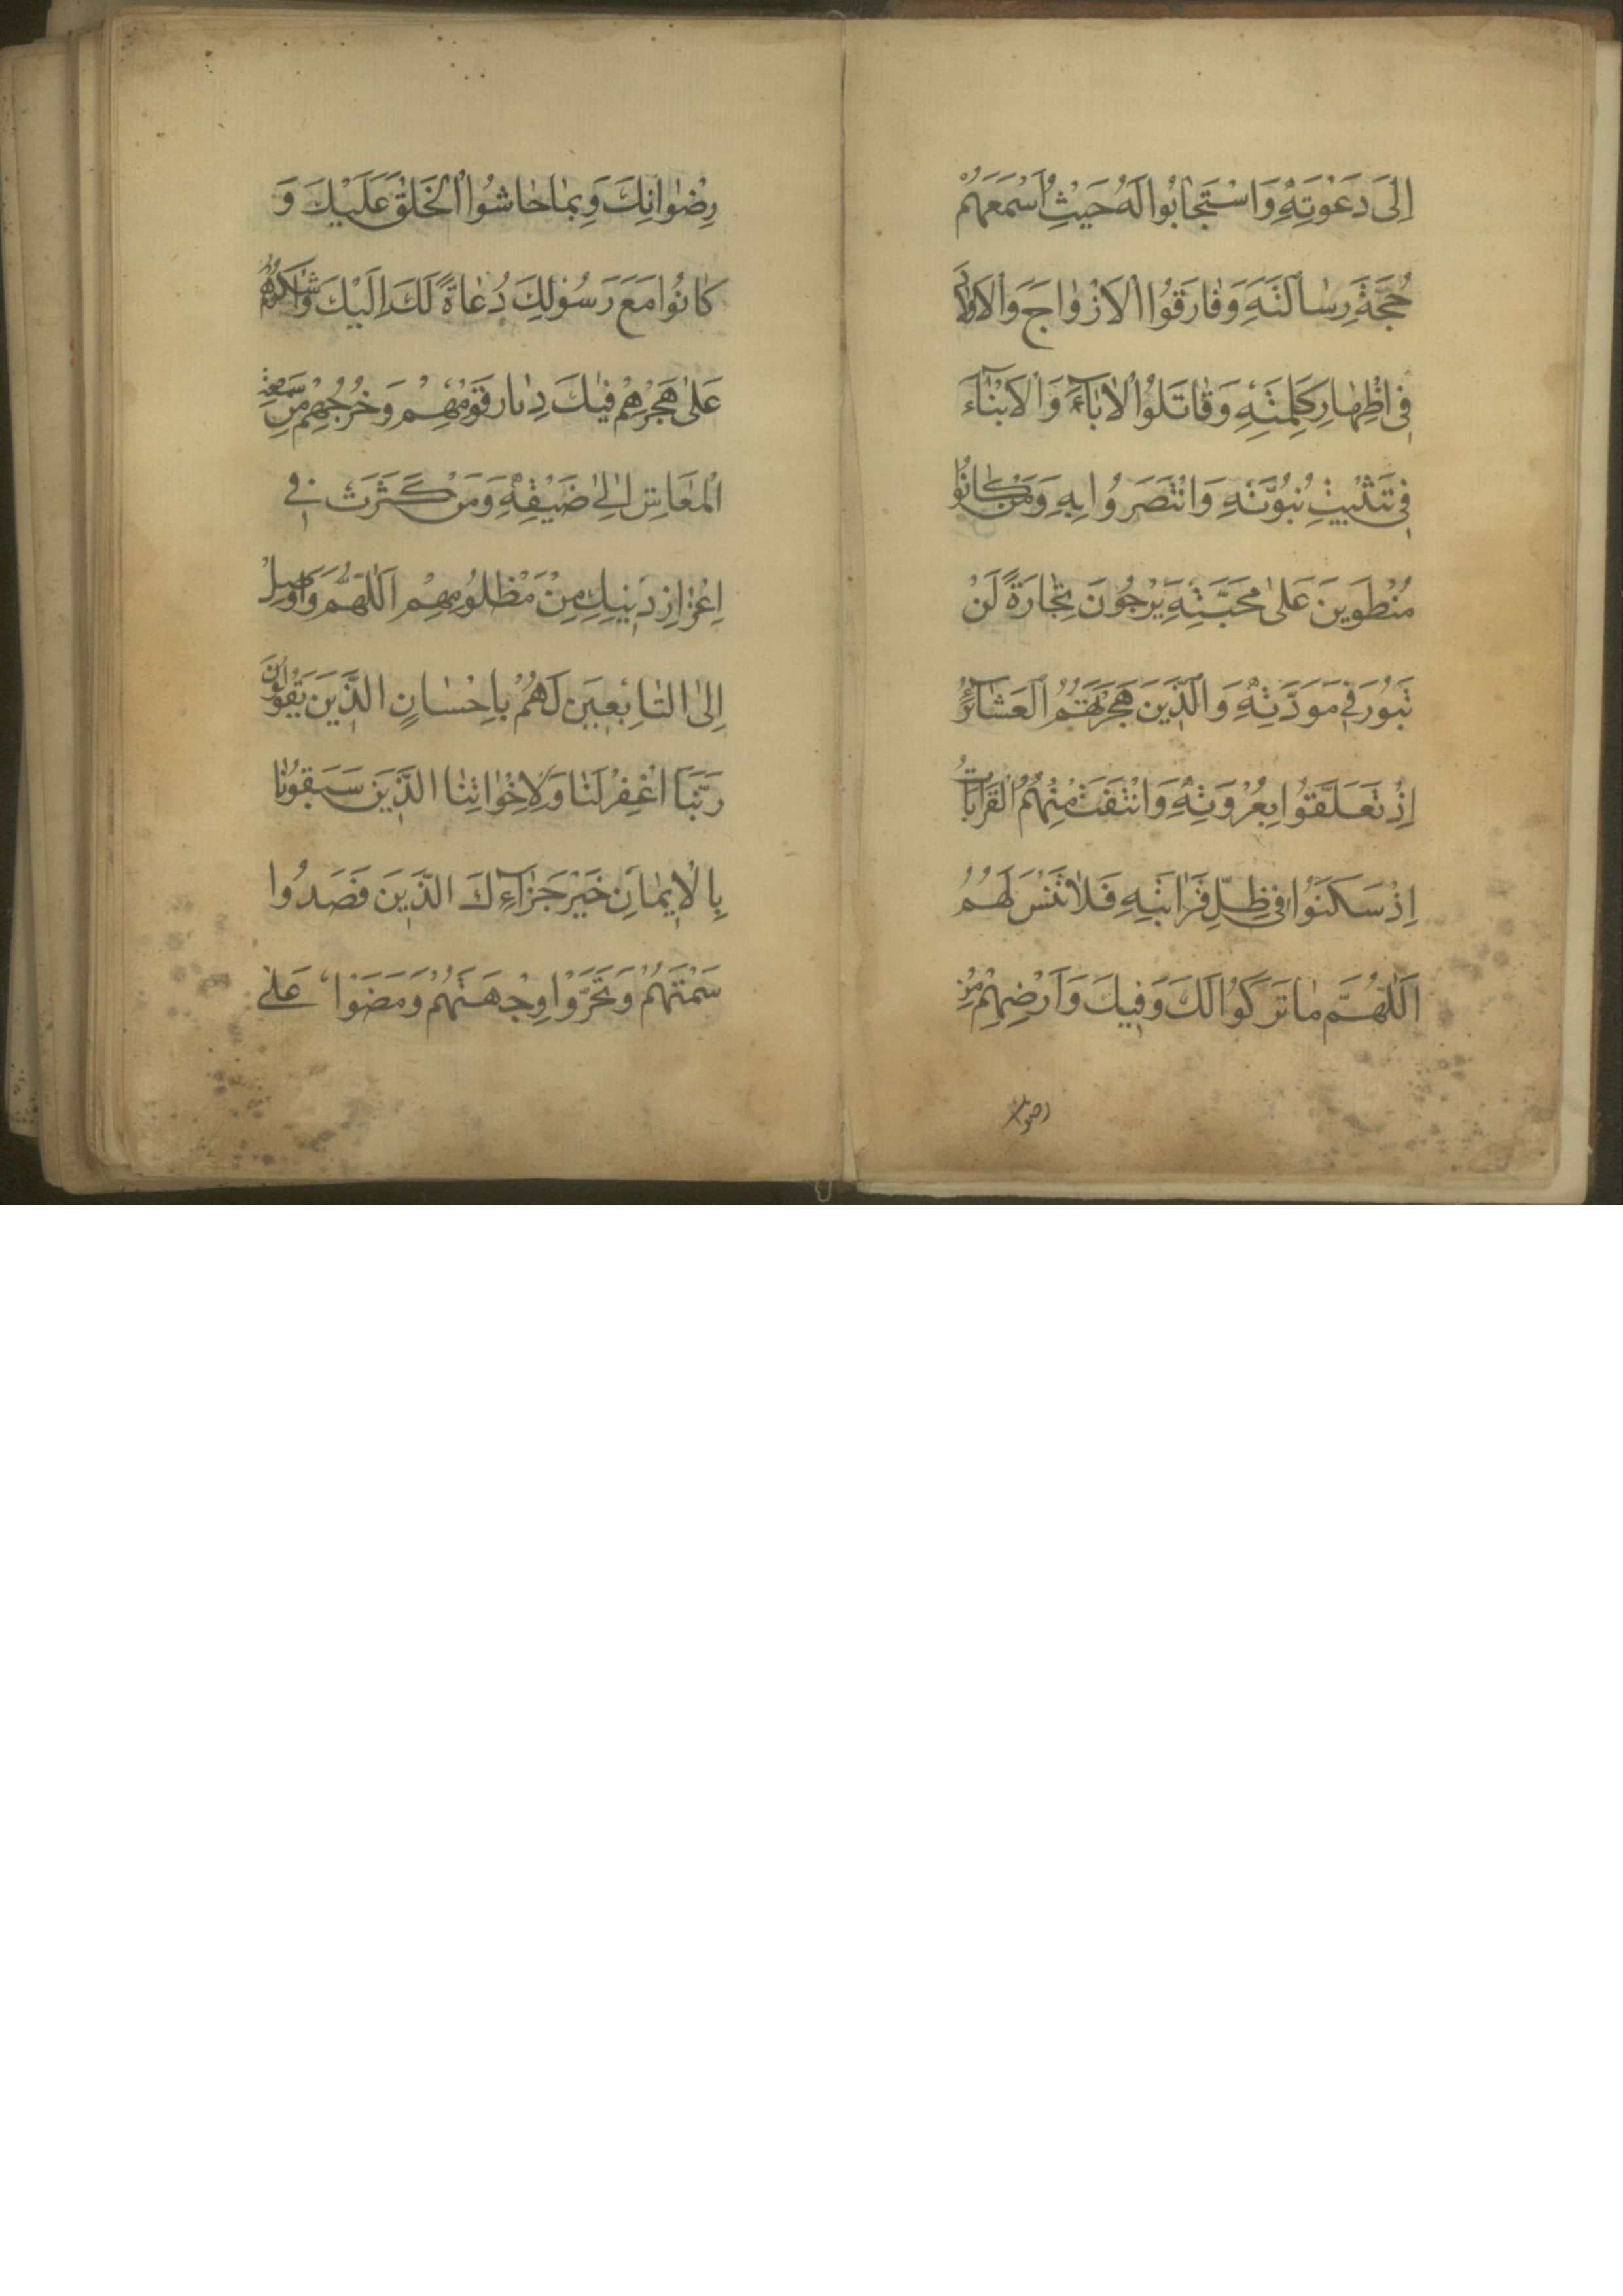 اِلىٰ دَعْوَتِهِ وَاسْتَجابُوا لَهُ حَيْثُ اَسْمَعَهُمْ
حُجَّةَ رِسالَتِهِ وَفارَقُوا الْاَزْواجَ وَالْاَوْلادَ
فى اِظْهارِ كَلِمَتِهِ وَقاتَلُوا الْاٰباۤءَ وَالْاَبْناۤءَ
فى تَثْبيتِ نُبُوَّتِهِ وَانْتَصَرُوا بِهِ وَمَنْ كانُوا
مُنْطَوِينَ عَلىٰ مَحَبَّتِهِ يَرْجُونَ تِجارَةً لَنْ
تَبُورَ فى مَوَدَّتِهِ وَالَّذينَ هَجَرَتْهُمُ الْعَشاۤئِرُ
اِذْ تَعَلَّقُوا بِعُرْوَتِهِ وَانْتَفَتْ مِنْهُمُ الْقَراباتُ
اِذْ سَكَنُوا فى ظِلِّ قَرابَتِهِ فَلا تَنْسَ لَهُمُ
اَللّٰهُمَّ ما تَرَكُوا لَكَ وَفيكَ وَاَرْضِهِمْ مِنْ
رضوانك
رِضْوانِكَ وَبِما حاشُوا الْخَلْقَ عَلَيْكَ وَ
كانُوا مَعَ رَسُولِكَ دُعاةً لَكَ اِلَيْكَ وَاشْكُرْهُمْ
عَلىٰ هَجْرِهِمْ فيكَ دِيارَ قَوْمِهِمْ وَخُرُوجِهِمْ مِنْ سَعَةِ
الْمَعَاشِ اِلىٰ ضَيْقِهِ وَمَنْ كَثَّرْتَ فى
اِعْزازِ دينِكَ مِنْ مَظْلُومِهِمْ اَللّٰهُمَّ وَاَوْصِلْ
اِلىَ التّابِعينَ لَهُمْ بِاِحْسانٍ الَّذينَ يَقُولُونَ
رَبَّنَا اغْفِرْ لَنا وَلِاِخْوانِنَا الَّذينَ سَبَقُونا
بِالْايمانِ خَيْرَ جَزاۤءِكَ الَّذينَ قَصَدُوا
سَمْتَهُمْ وَتَحَرَّوْا وِجْهَتَهُمْ وَمَضَوْا عَلىٰ